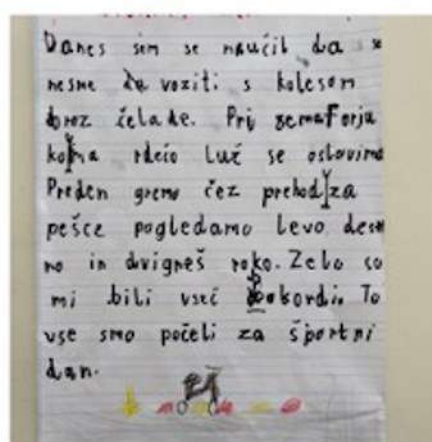 Danes sem se naučil da se
nesme voziti s kolesom
broz čelade. Pri semaforju
ko ima rdečo luč se ostavimo
Preden gremo čez prehod za
pešce pogledamo levo desn
no in dvigneš roko. Zelo so
mi bili všeč rekordi. To
vse smo počeli za športni
dan.